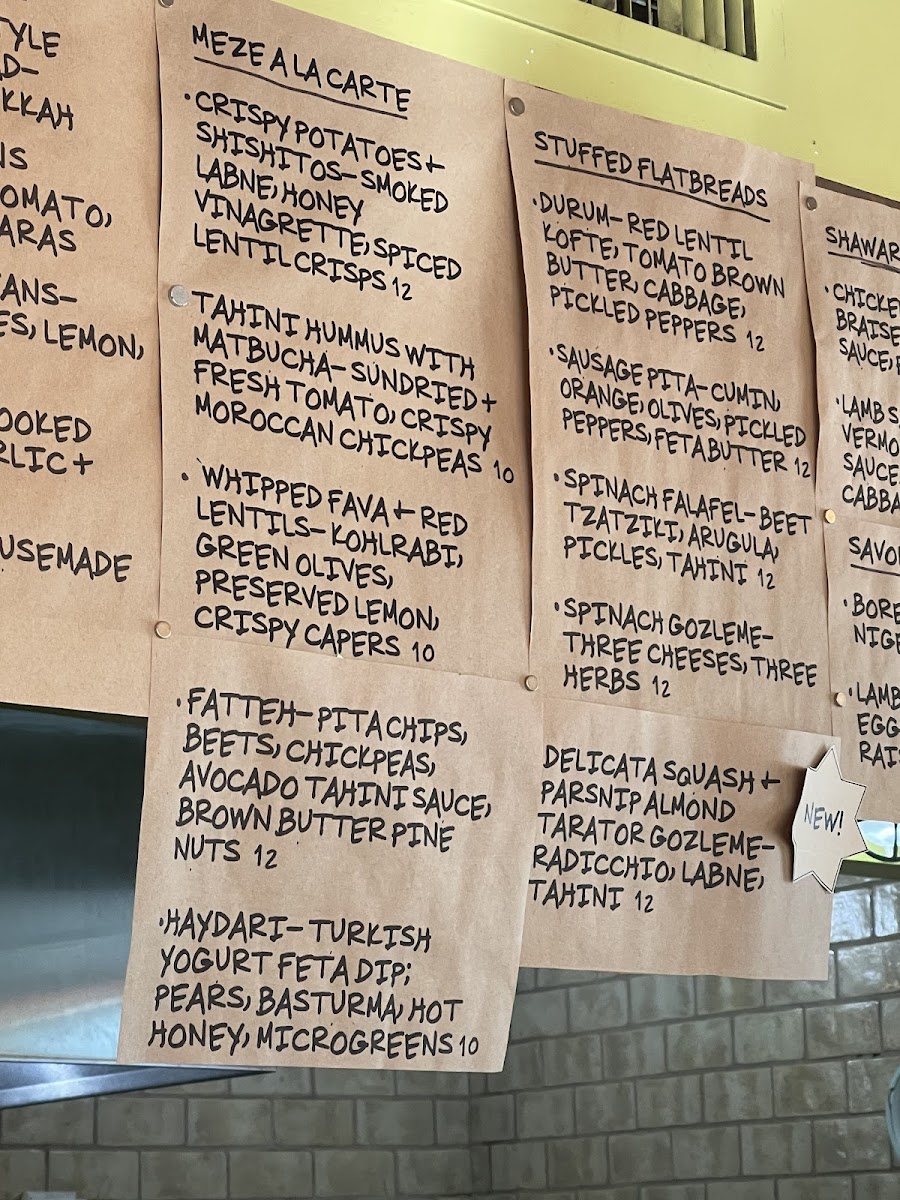 TYLE
KKAH
NS
TOMATO,
ARAS
ANS-
ES, LEMON,
OOKED
RLIC +
USEMADE
MEZE A LA CARTE
• CRISPY POTATOES +
SHISHITOS- SMOKED
LABNE, HONEY
VINAGRETTE, SPICED
LENTIL CRISPS 12
TAHINI HUMMUS WITH
MATBUCHA- SUNDRIED +
FRESH TOMATO, CRISPY
MOROCCAN CHICKPEAS 10
• WHIPPED FAVA + RED
LENTILS- KOHLRABI,
GREEN OLIVES,
PRESERVED LEMON,
CRISPY CAPERS 10
• FATTEH- PITA CHIPS,
BEETS, CHICKPEAS,
AVOCADO TAHINI SAUCE,
BROWN BUTTER PINE
NUTS 12
• HAYDARI- TURKISH
YOGURT FETA DIP;
PEARS, BASTURMA, HOT
HONEY, MICROGREENS 10
STUFFED FLATBREADS
• DURUM- RED LENTIL
KOFTE, TOMATO BROWN
BUTTER, CABBAGE,
PICKLED PEPPERS 12
• SAUSAGE PITA- CUMIN,
ORANGE, OLIVES, PICKLED
PEPPERS, FETA BUTTER 12
• SPINACH FALAFEL- BEET
TZATZIKI, ARUGULA,
PICKLES, TAHINI 12
• SPINACH GOZLEME-
THREE CHEESES, THREE
HERBS 12
DELICATA SQUASH +
PARSNIP ALMOND
TARATOR GOZLEME-
RADICCHIO, LABNE,
TAHINI 12
NEW!
SHAWAR
• CHICKE
BRAISE
SAUCE,
• LAMB S
VERMO
SAUCE
CABBA
SAVO
• BORE
NIGE
• LAMB
EGG
RAI